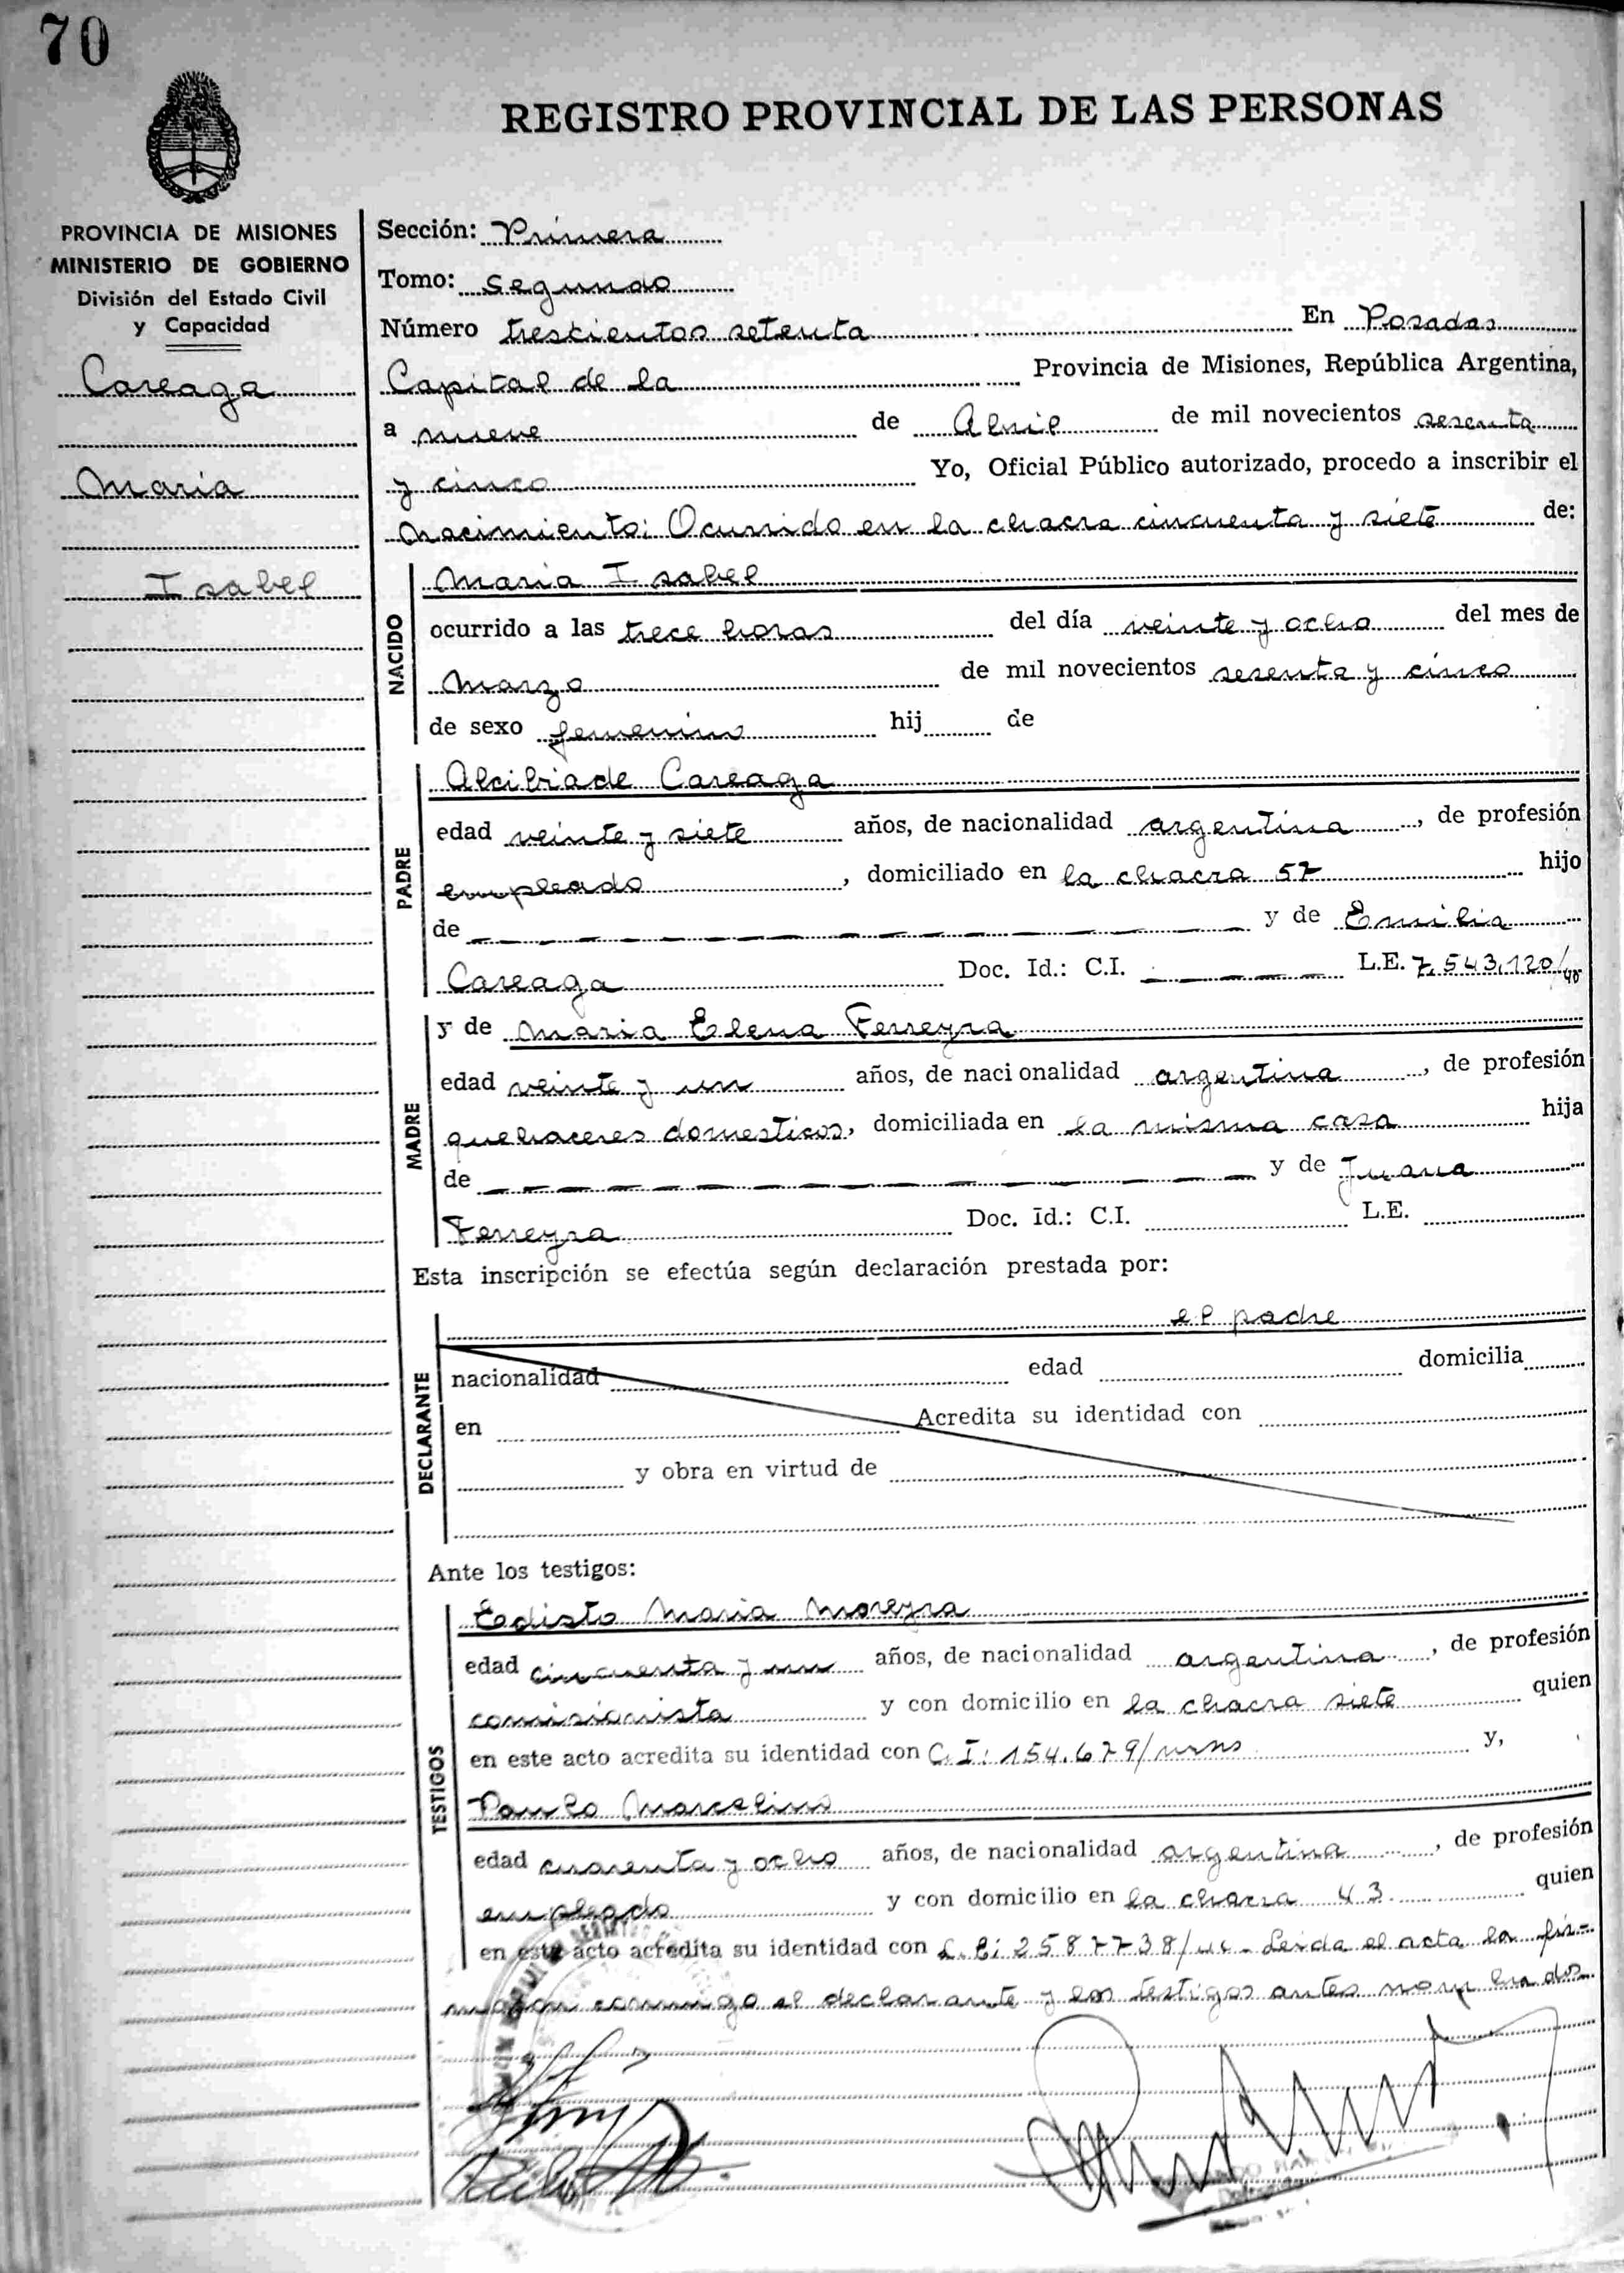 70
REGISTRO PROVINCIAL DE LAS PERSONAS
PROVINCIA DE MISIONES
MINISTERIO DE GOBIERNO
División del Estado Civil
y Capacidad
Careaga
Maria
Isabel
Sección: Primera
Tomo: Segundo
Número trescientos setenta En Posadas
Capital de la Provincia de Misiones, República Argentina,
a nueve de Abril de mil novecientos sesenta
y cinco Yo, Oficial Público autorizado, procedo a inscribir el
Nacimiento: Ocurrido en la chacra cincuenta y siete de:
NACIDO
Maria Isabel
ocurrido a las trece horas del día veinte y ocho del mes de
Marzo de mil novecientos sesenta y cinco
de sexo femenino hij de
PADRE
Alcibiade Careaga
edad veinte y siete años, de nacionalidad argentina, de profesión
empleado, domiciliado en la chacra 57 hijo
de y de Emilia
Careaga Doc. Id.: C.I. L.E. 7.543.120/40
MADRE
y de Maria Elena Ferreyra
edad veinte y un años, de nacionalidad argentina, de profesión
quehaceres domesticos, domiciliada en la misma casa hija
de y de Juana
Ferreyra Doc. Id.: C.I. L.E.
Esta inscripción se efectúa según declaración prestada por:
DECLARANTE
el padre
nacionalidad edad domicilia
en Acredita su identidad con
y obra en virtud de
Ante los testigos:
TESTIGOS
Edisto Maria Moreyra
edad cincuenta y un años, de nacionalidad argentina, de profesión
comisionista y con domicilio en la chacra siete quien
en este acto acredita su identidad con C.I: 154.679/ y,
Paulo Marcelino
edad cuarenta y ocho años, de nacionalidad argentina, de profesión
empleado y con domicilio en la chacra 43 quien
en este acto acredita su identidad con L.E: 2587738/ - Leida el acta la fir=
conmigo el declarante y los testigos antes nombrados